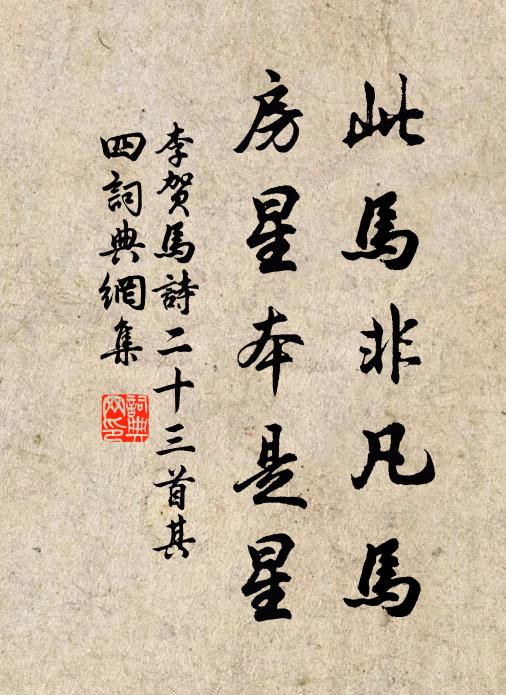 此馬非凡馬
房星本是星
李賀馬詩二十三首其
四詞典網集
詞典網印